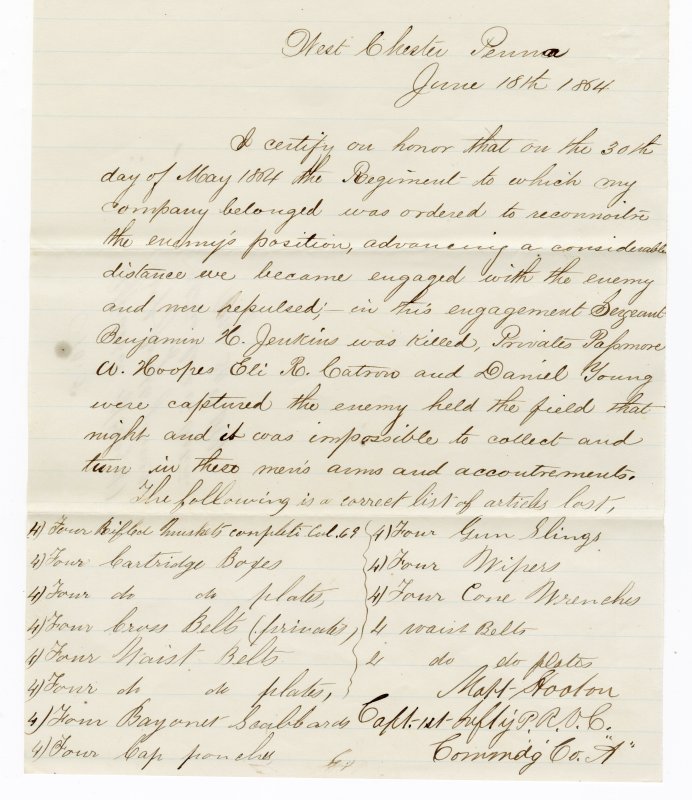 West Chester Penna
June 18th 1864
I certify on honor that on the 30th
day of May 1864 the Regiment to which my
company belonged was ordered to reconnoitre
the enemy's position, advancing a considerable
distance we became engaged with the enemy
and were repulsed; - in this engagement Sergeant
Benjamin H. Jenkins was killed, Privates Passmore
W. Hoopes Eli R. Catron and Daniel Young
were captured the enemy held the field that
night and it was impossible to collect and
turn in these men's arms and accoutrements.
The following is a correct list of articles lost,
4) Four Rifled Muskets complete Cal. 69
4) Four Cartridge Boxes
4) Four do do plates,
4) Four Cross Belts (privates,
4) Four Waist Belts
4) Four do do plates,
4) Four Bayonet Scabbards
4) Four Cap pouches
4) Four Gun Slings
4) Four Wipers
4) Four Cone Wrenches
4 waist Belts
4 do do plates
Mapt Hooton
Capt. 1st Infty P.R.V.C.
Commdg Co. "A"